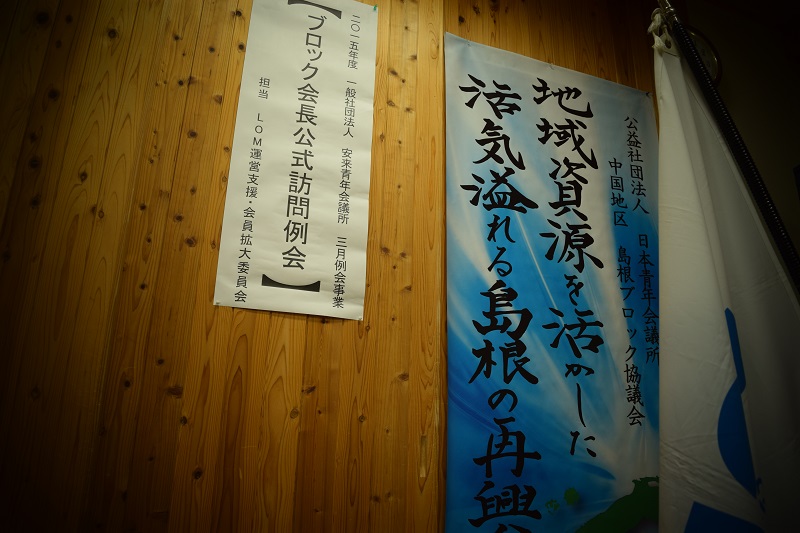 二〇一五年度 一般社団法人 安来青年会議所 三月例会事業
【ブロック会長公式訪問例会】
担当 LOM運営支援・会員拡大委員会
公益社団法人 日本青年会議所
中国地区 島根ブロック協議会
地域資源を活かした
活気溢れる島根の再興